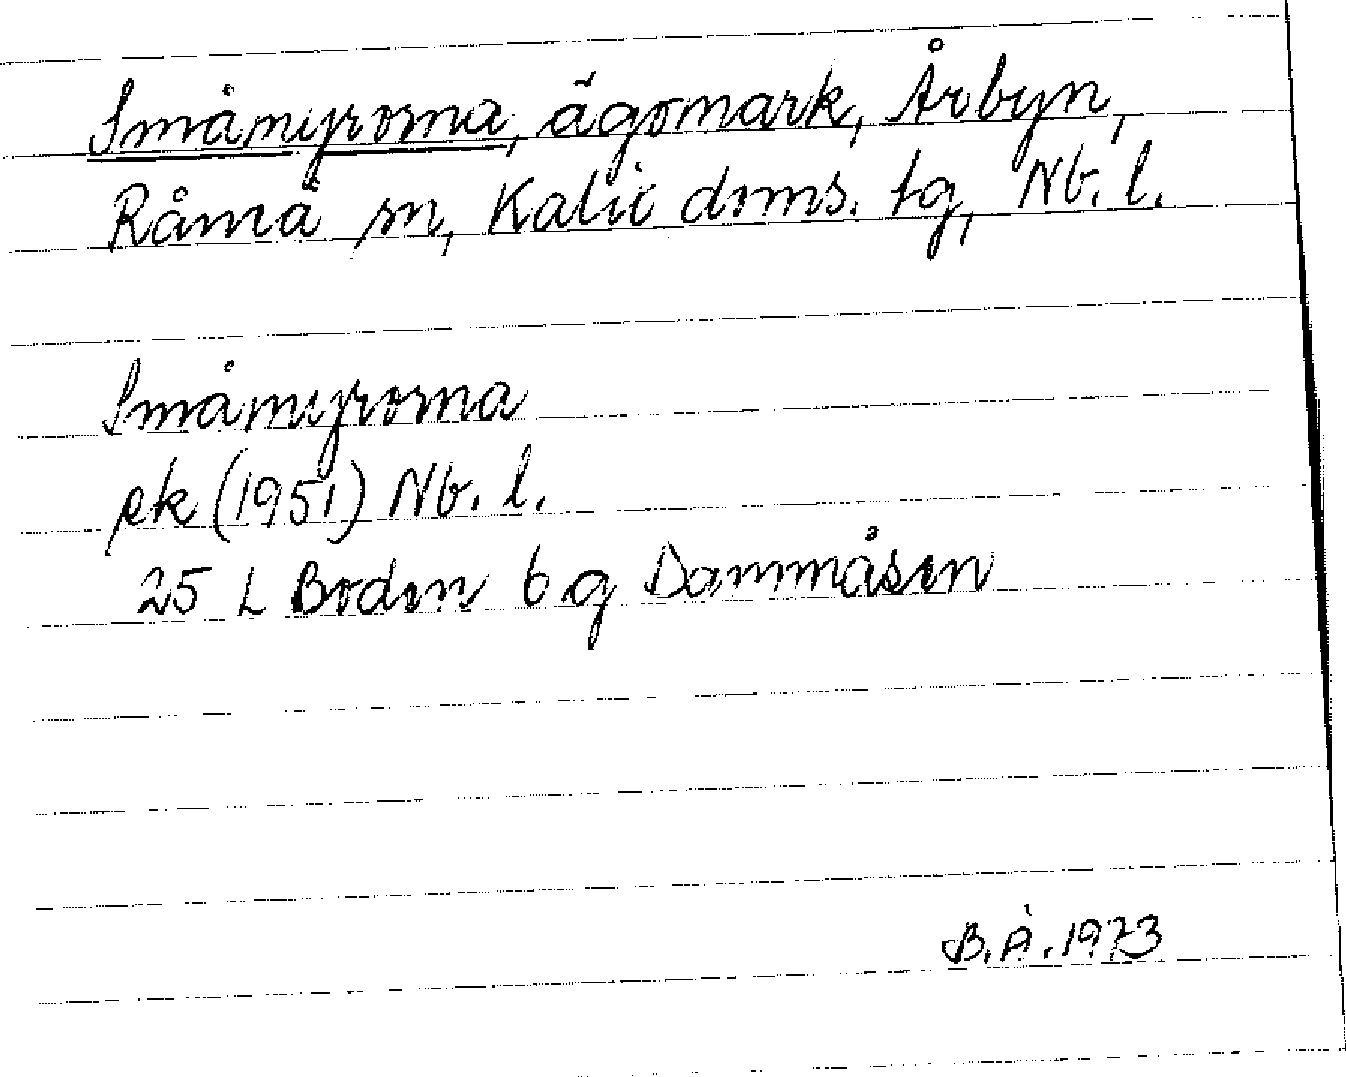 Småmyrorna, ägomark, Årbyn,
Råneå sn, Kalix doms. tg, Nb. l.
Småmyrorna
ek (1951) Nb. l.
25 L Boden 6 g Dammåsen
B.Å. 1973